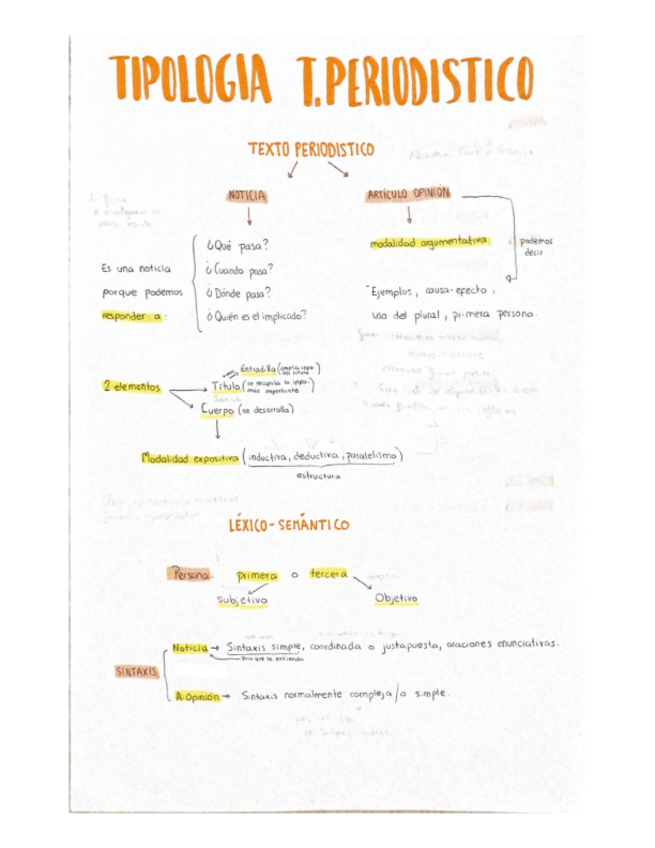 TIPOLOGIA T.PERIODISTICO
TEXTO PERIODISTICO
NOTICIA
ARTÍCULO OPINIÓN
modalidad argumentativa
podemos
decir
Es una noticia
porque podemos
responder a:
¿Qué pasa?
¿Cuando pasa?
¿Dónde pasa?
¿Quién es el implicado?
Ejemplos, causa-efecto,
uso del plural, primera persona.
2 elementos
Entradilla (
Título (se recopila lo
más importante)
Cuerpo (se desarrolla)
Modalidad expositiva (inductiva, deductiva, paralelismo)
estructura
LÉXICO-SEMÁNTICO
Persona: primera o tercera
Subjetivo
Objetivo
SINTAXIS
Noticia → Sintaxis simple, coordinada o justapuesta, oraciones enunciativas.
para que se entienda
A.Opinión → Sintaxis normalmente compleja/o simple.